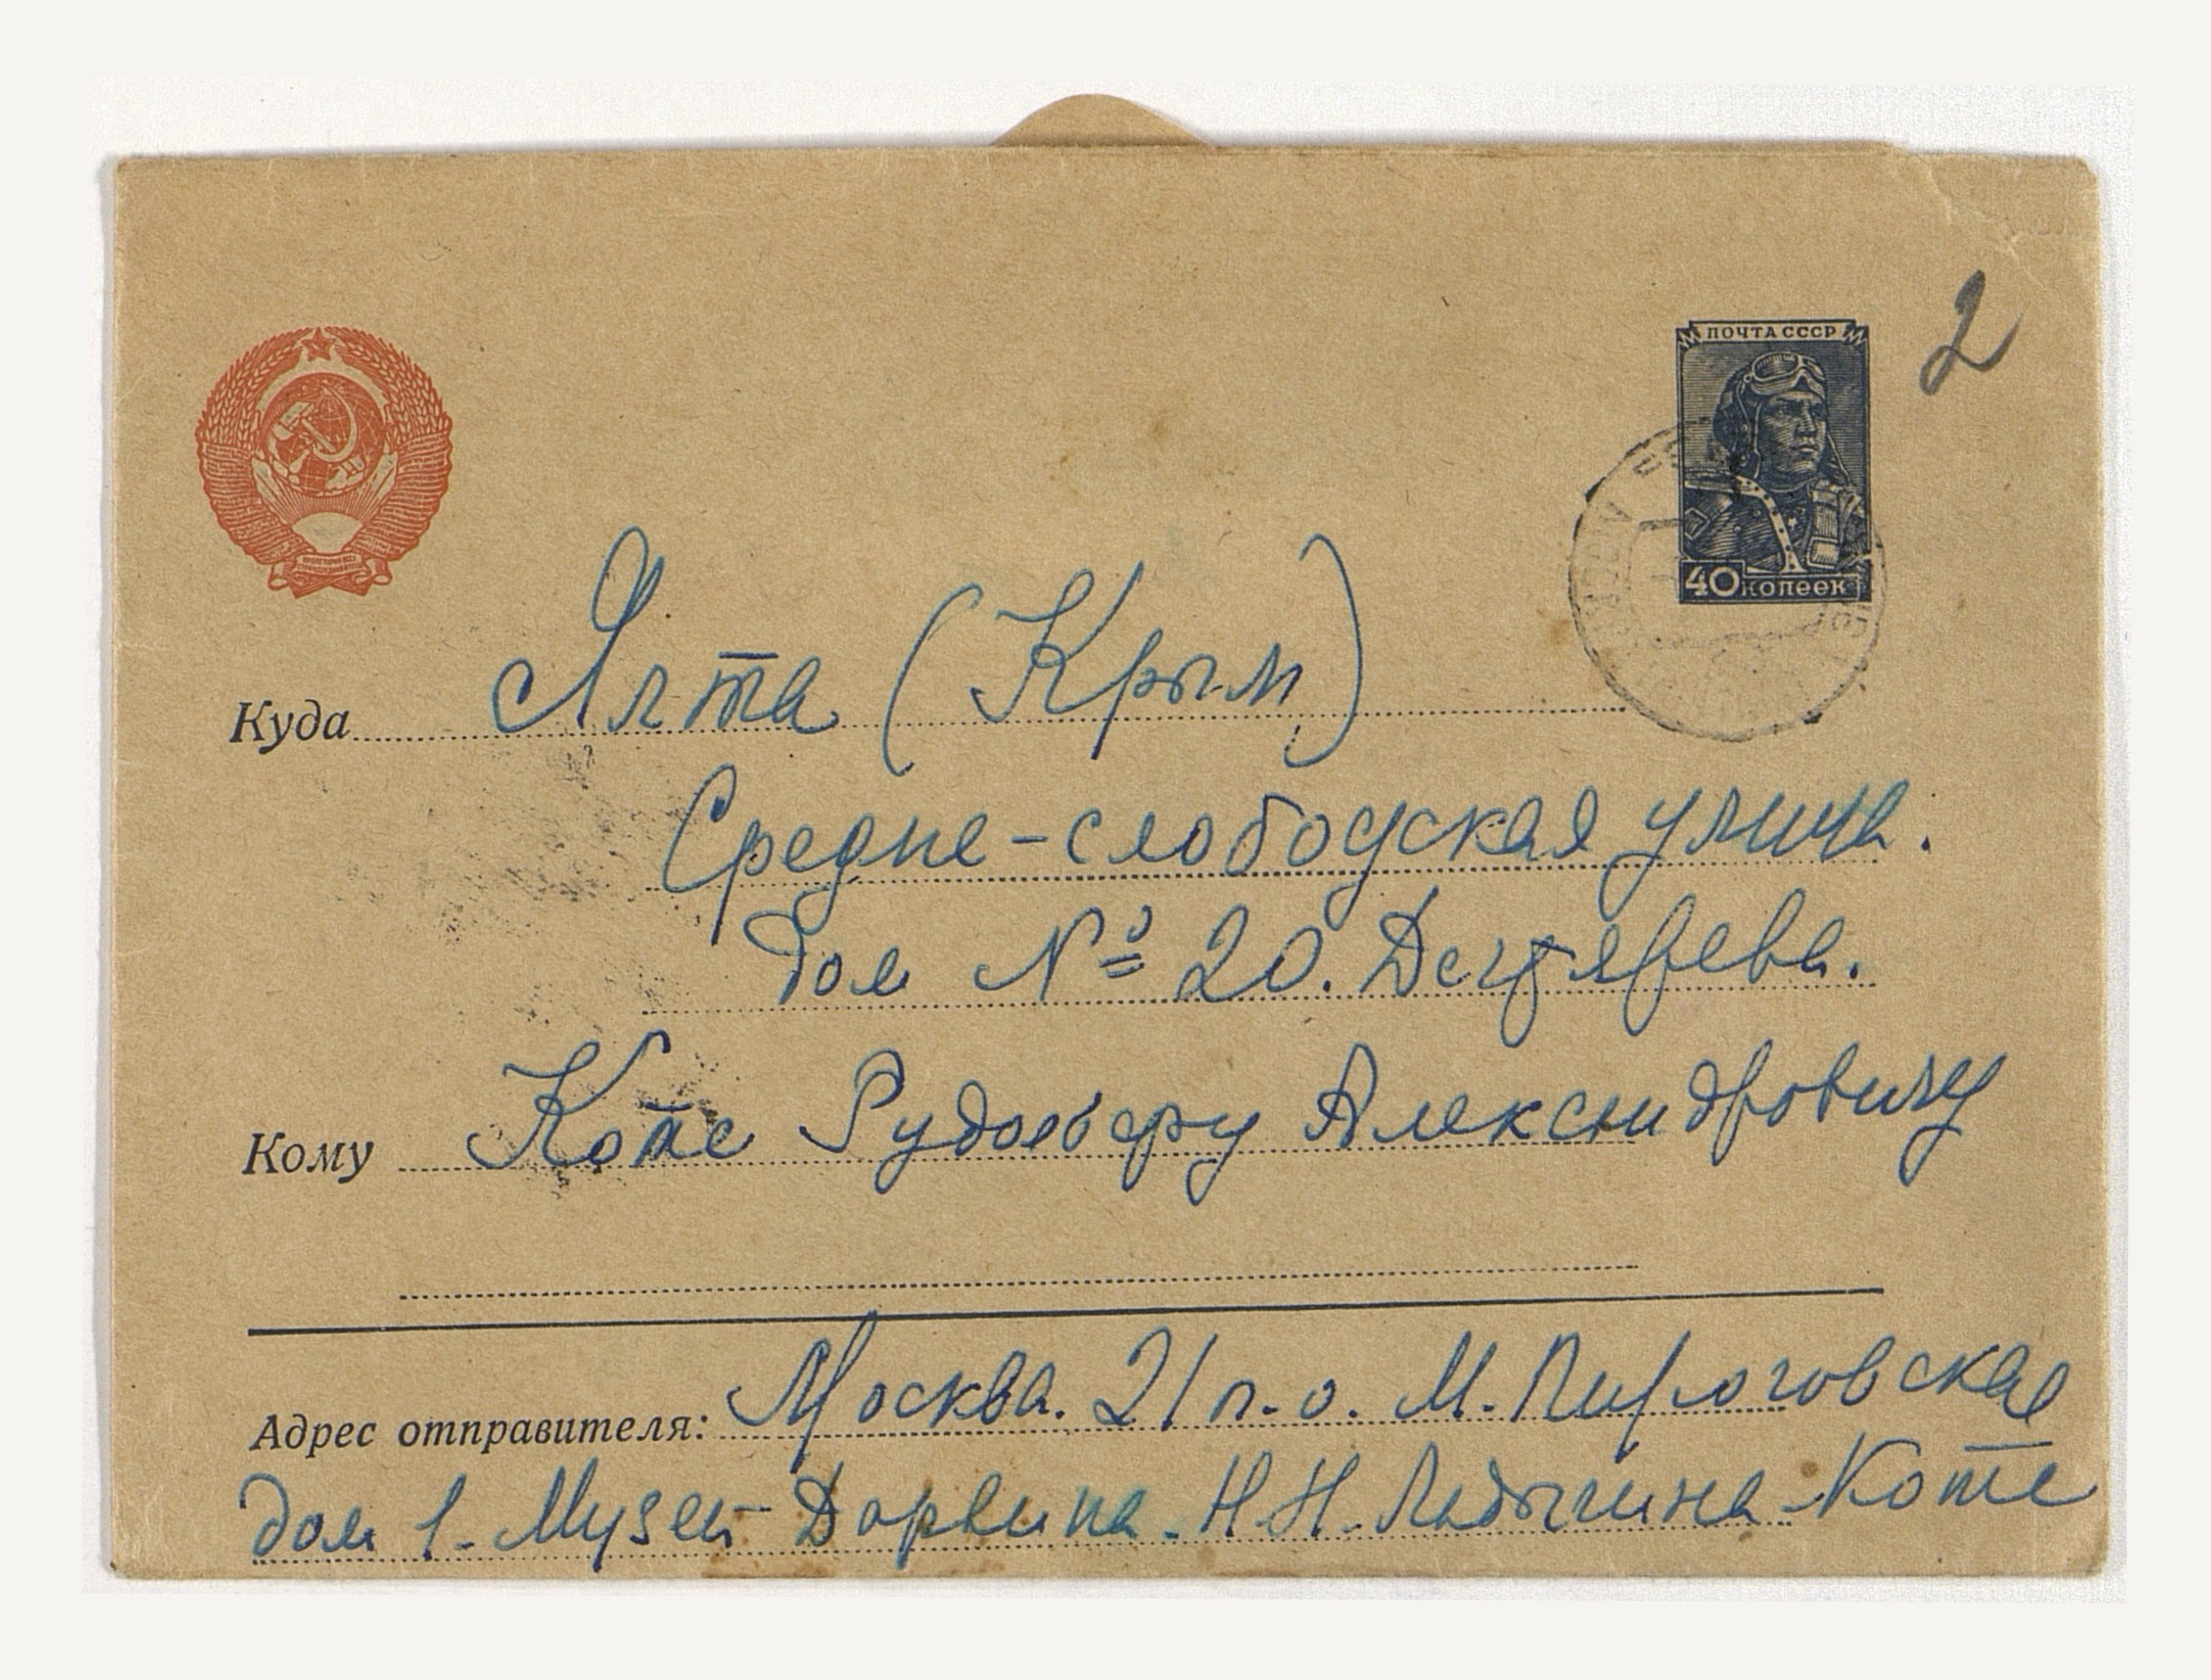 2
ПОЧТА СССР
40 копеек
Куда Ялта (Крым)
Средне-слободская улица.
дом № 20. Дегтярева.
Кому Котс Рудольфу Александровичу
Адрес отправителя: Москва. 21 п.о. М. Пироговская
дом 1. Музей Дарвина. Н.Н. Ладыгина-Котс